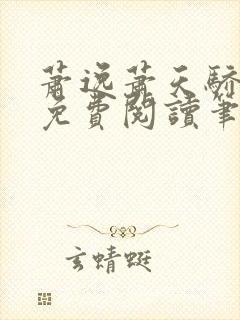 蕭逸蕭天驕
免費閱讀筆
玄蜻蜓